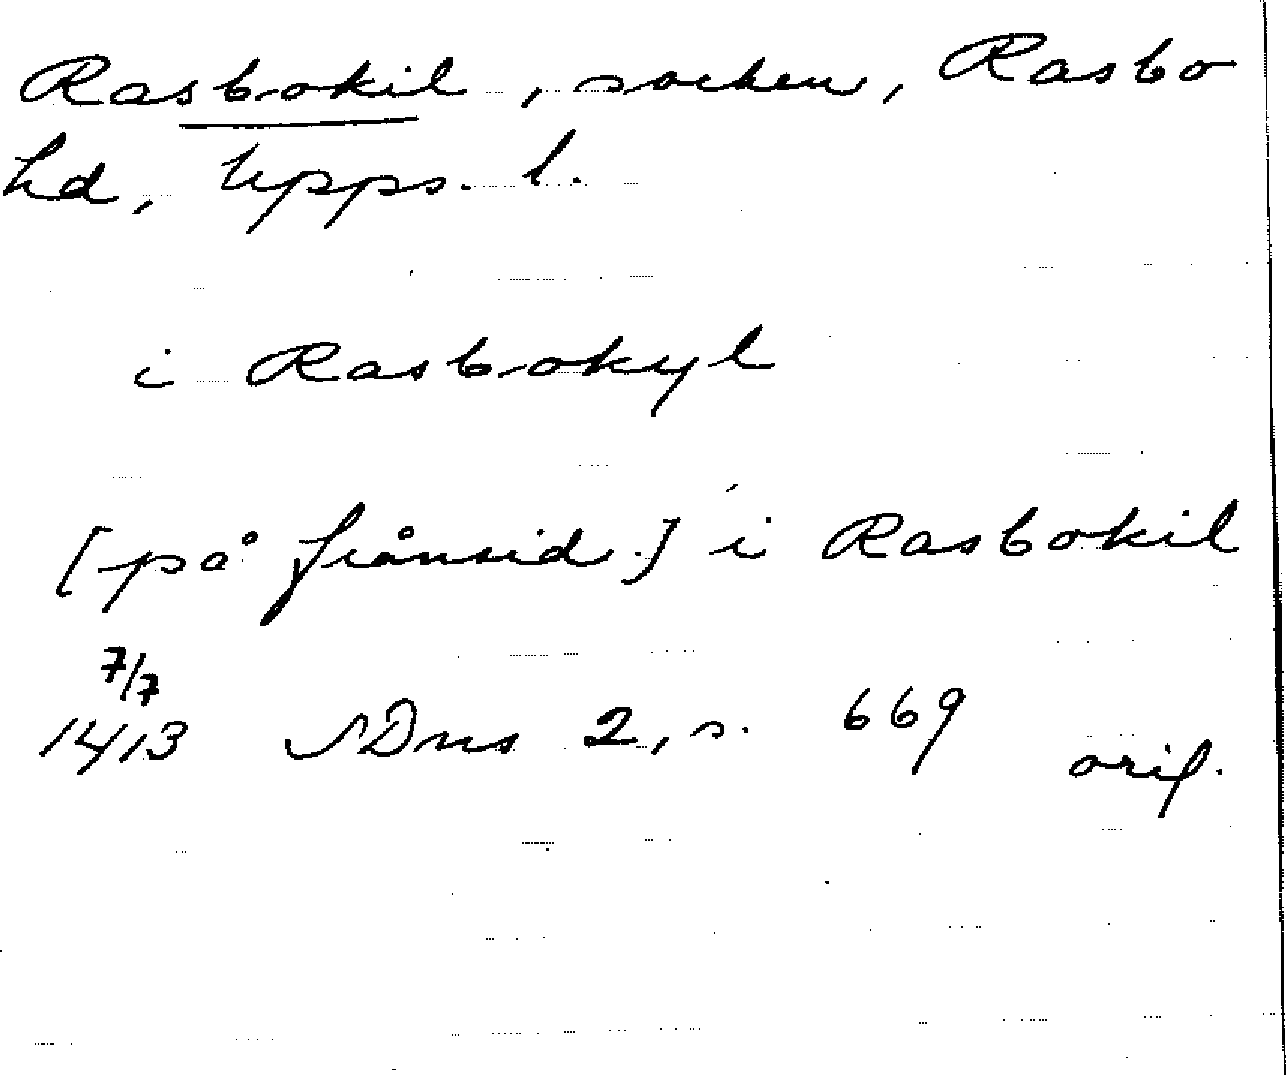 Rasbokil, socken, Rasbo
hd, Upps. l.
i Rasbokyl
[på frånsid.] i Rasbokil
7/7
1413 SDns 2, s. 669 orig.